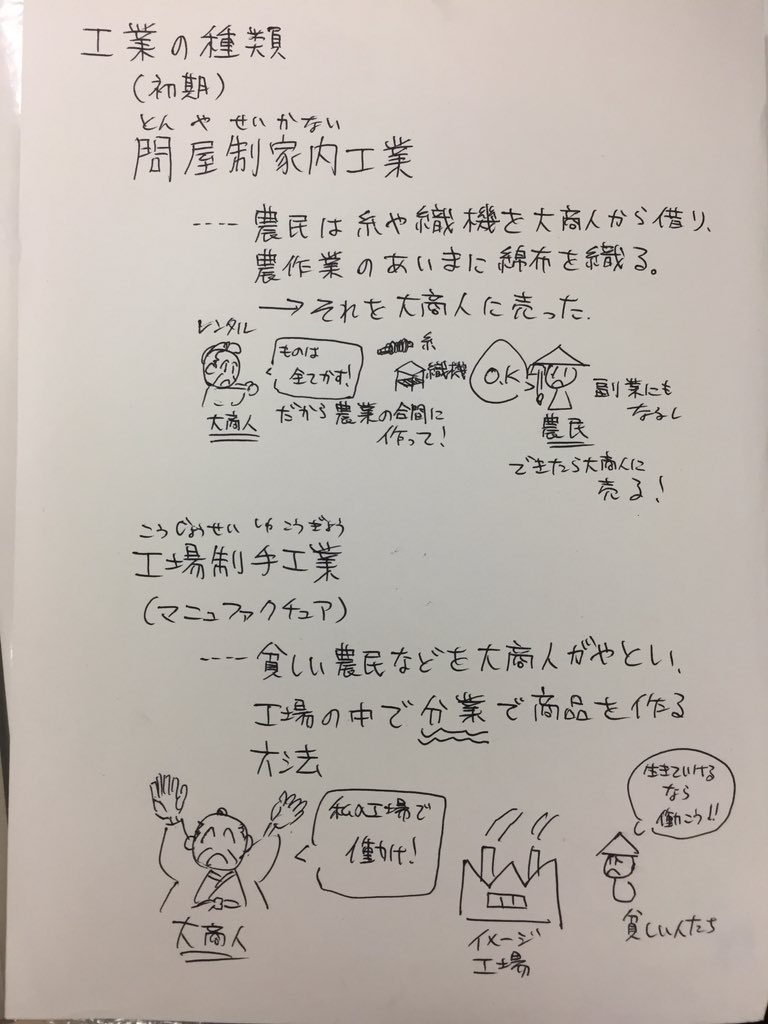 工業の種類
(初期)
とんやせいかない
問屋制家内工業
---- 農民は糸や織機を大商人から借り、
農作業のあいまに綿布を織る。
→それを大商人に売った.
レンタル
ものは
全てかす!
糸
織機
O.K
副業にも
なるし
大商人
だから農業の合間に
作って!
農民
できたら大商人に
売る!
こうじょうせいしゅこうぎょう
工場制手工業
(マニュファクチュア)
---- 貧しい農民などを大商人がやとい、
工場の中で分業で商品を作る
方法
生きていける
なら
働こう!!
私の工場で
働け!
大商人
イメージ
工場
貧しい人たち